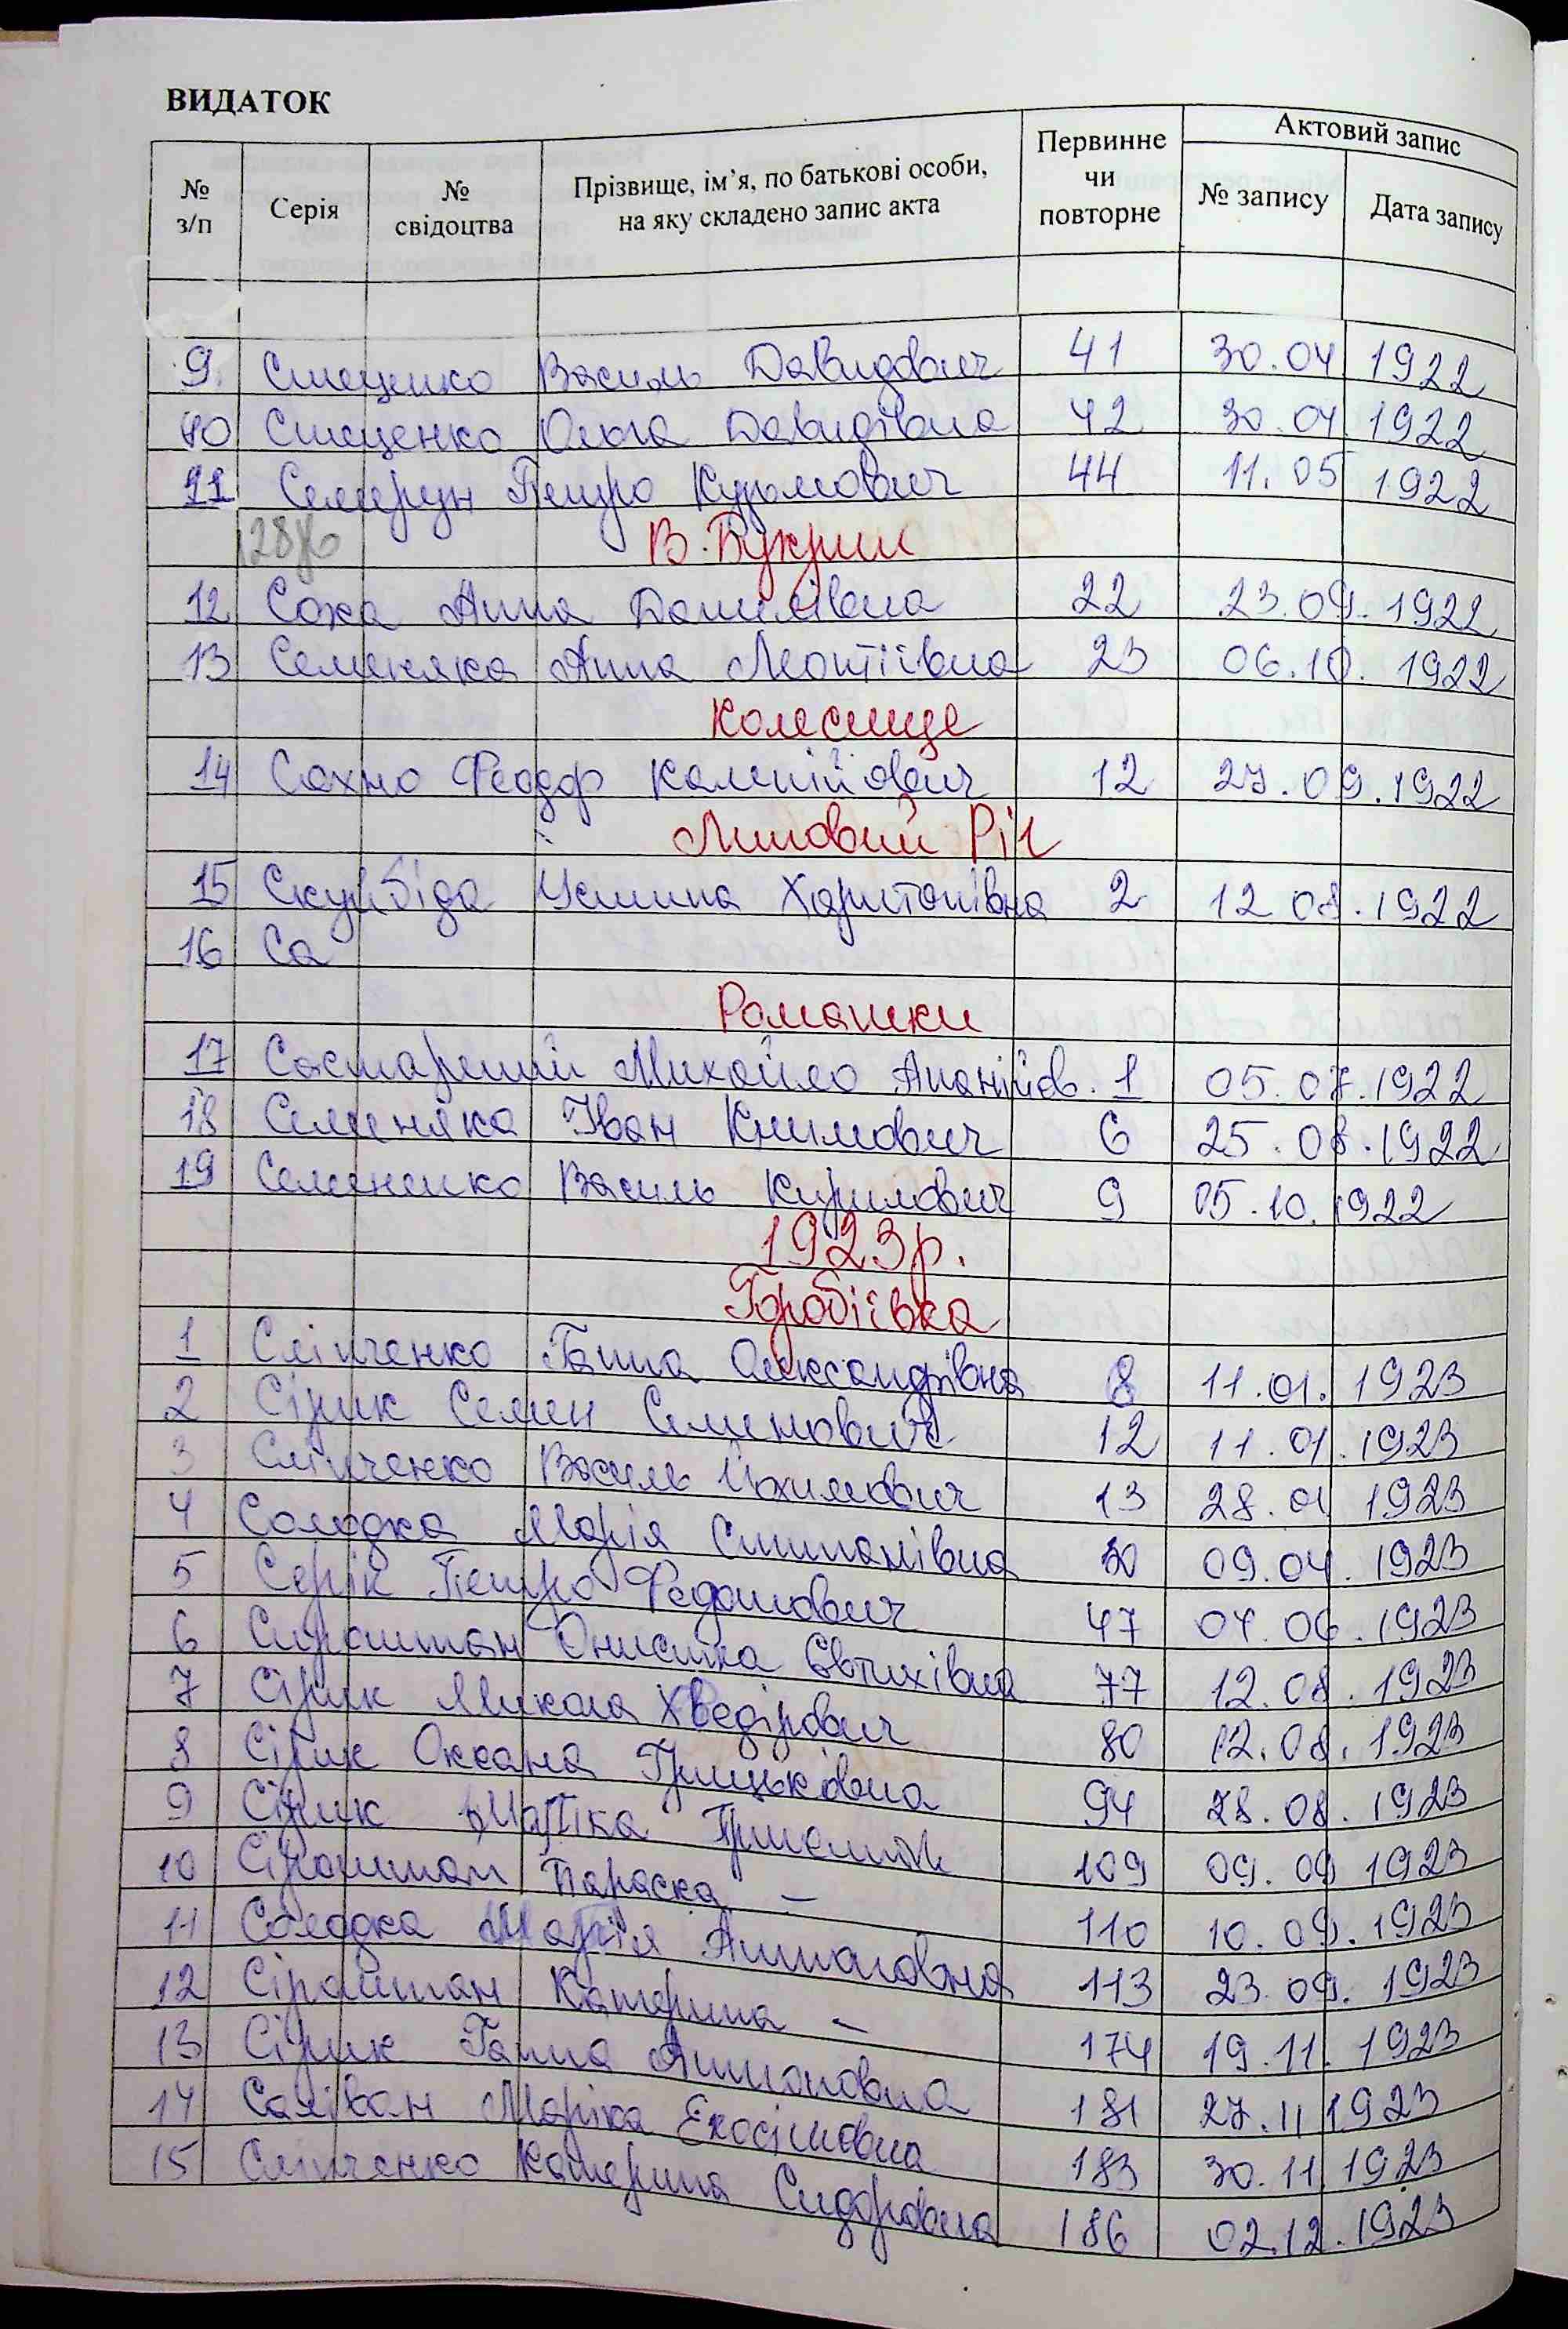 ВИДАТОК
№ з/п Серія № свідоцтва Прізвище, ім’я, по батькові особи, на яку складено запис акта Первинне чи повторне Актовий запис № запису Дата запису
9 Стеценко Василь Давидович 41 30.04 1922
10 Стеценко Ольга Давидівна 42 30.04 1922
11 Семерун Петро Кузьмович 44 11.05 1922
В. Букрин
12 Соха Анна Данилівна 22 23.09.1922
13 Семеняка Анна Леонтіївна 23 06.10.1922
Колесище
14 Сахно Феодор 12 27.09.1922
Липовий Ріг
15 Скумбіда Устина Харитонівна 2 12 08.1922
16 Са
Ромашки
17 Састарший Михайло Ананійов. 1 05.07.1922
18 Семеняка Іван Климович 6 25.08.1922
19 Семененко Василь Кирилович 9 05.10.1922
1923р.
Горобіївка
1 Сліпченко Ганна Олександрівна 8 11.01.1923
2 Сірик Семен Семенович 12 11.01.1923
3 Сліпченко Василь Йохимович 13 28.01 1923
4 Солодка Марія Степанівна 30 09.04.1923
5 Серік Петро Федотович 47 04.06.1923
6 Сироштан Онисика Євтихівна 77 12.08.1923
7 Сірик Микола Хведірович 80 12.08.1923
8 Сірик Оксана Грицьківна 94 28.08.1923
9 Сірик Марїка 109 09.09 1923
10 Сіроштан Параска – 110 10.09.1923
11 Солодка Марія Антоновна 113 23.09.1923
12 Сіроштан Катерина – 174 19.11.1923
13 Сірик Ганна Антоновна 181 27.11 1923
14 Саліван Маріка 183 30.11.1923
15 Сліпченко Катерина Сидоровна 186 02.12.1923